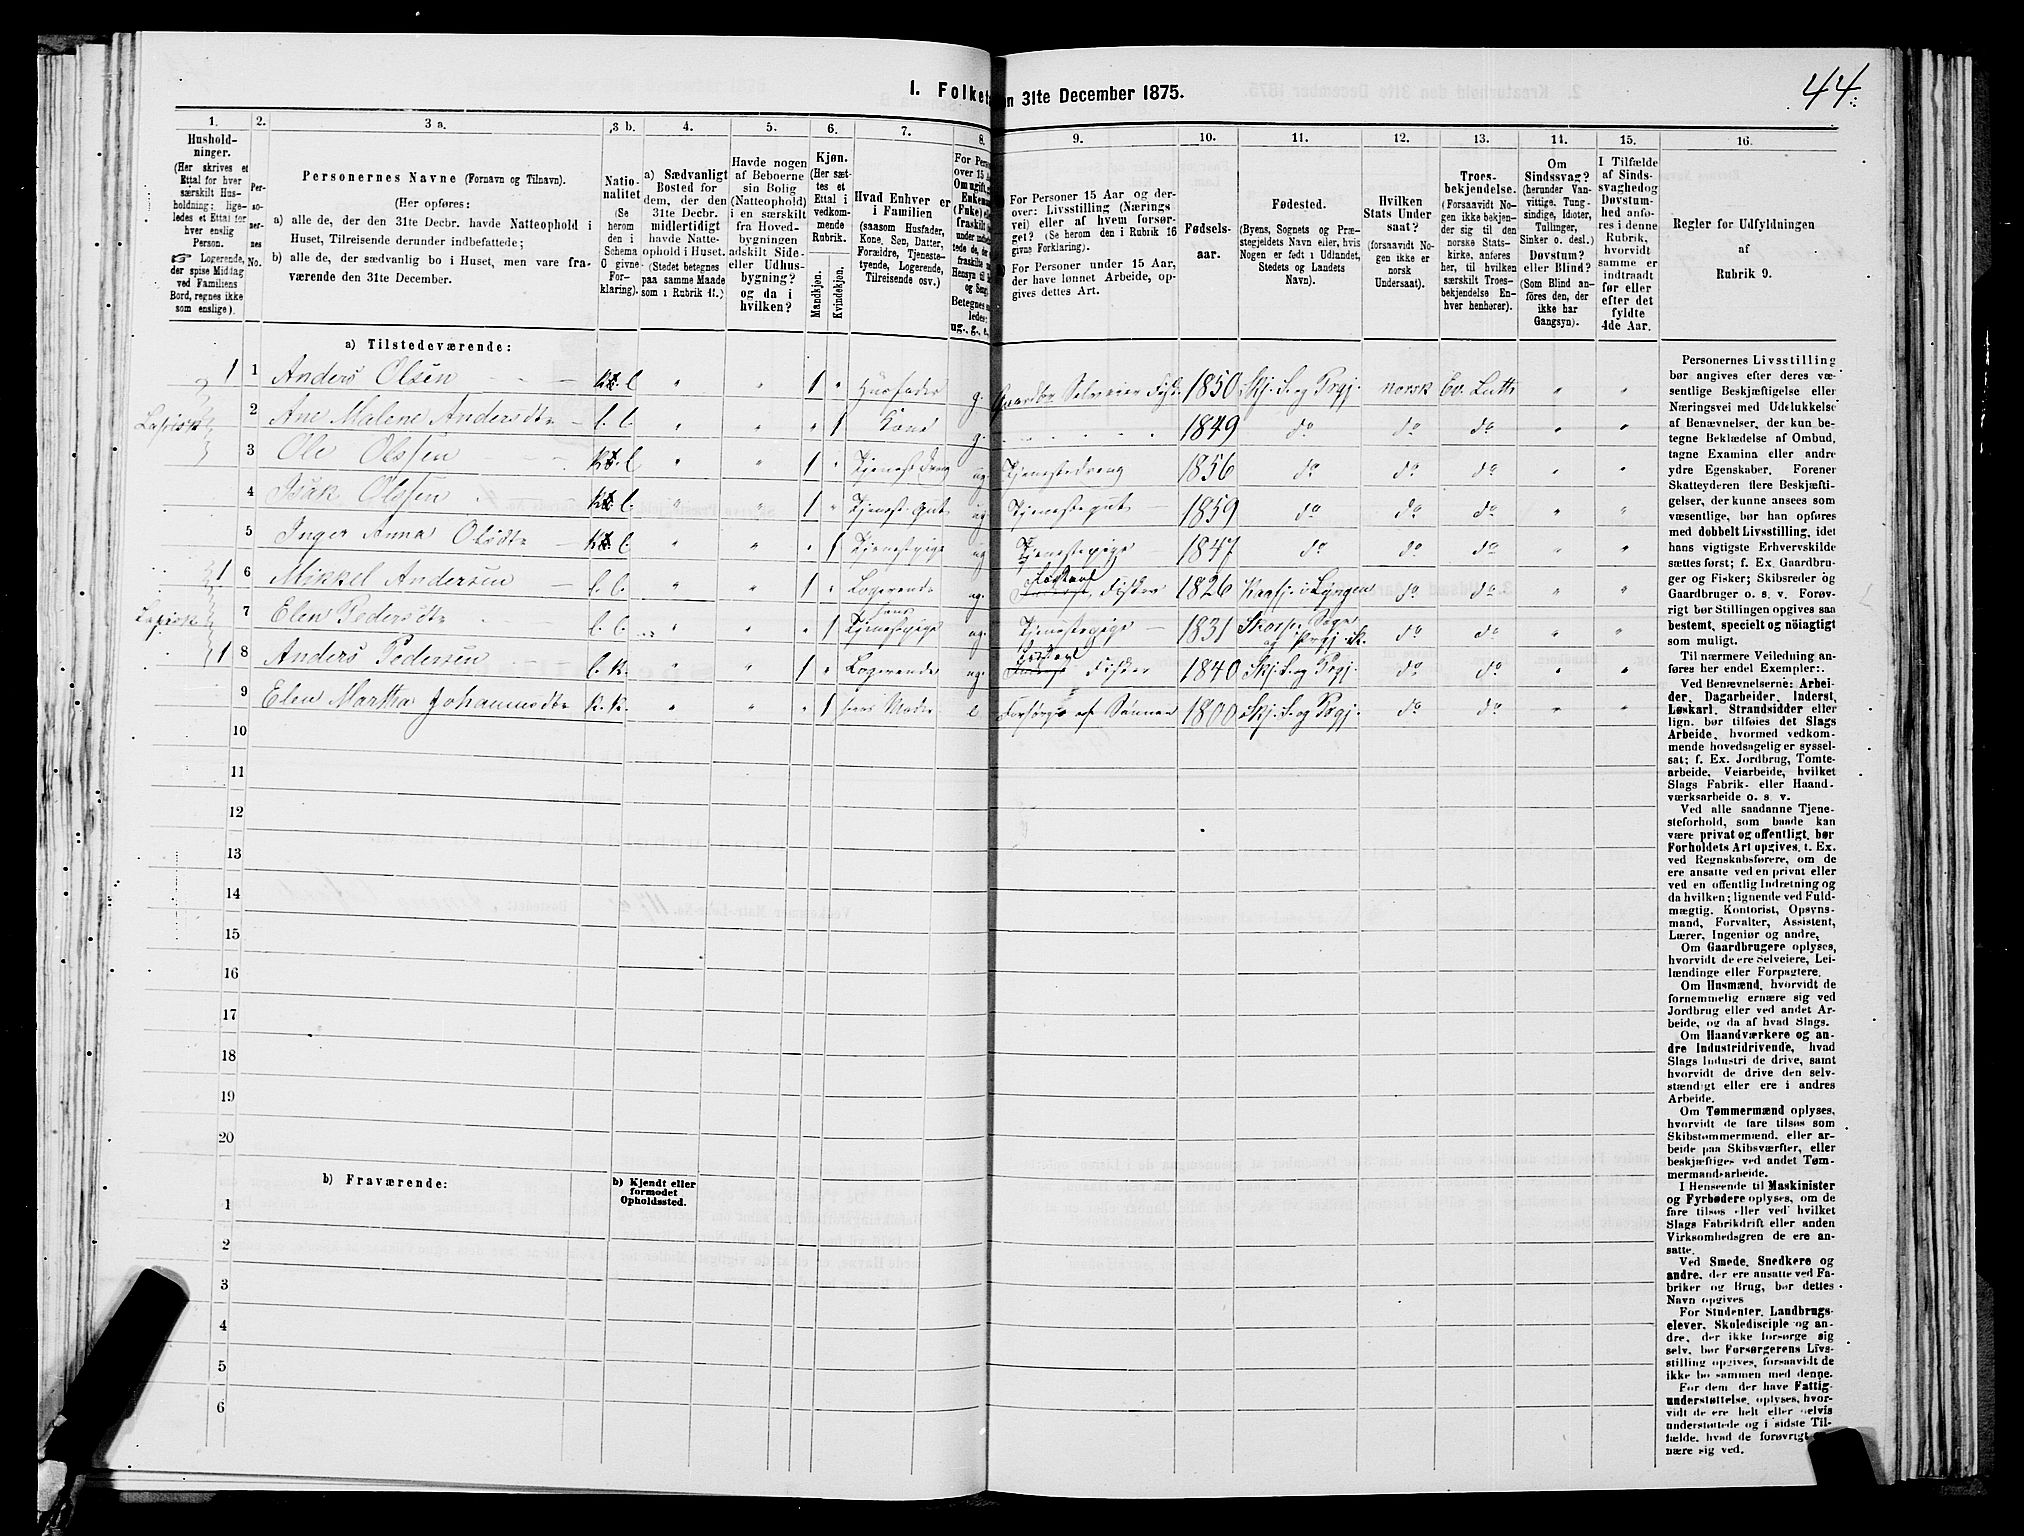 44.
I. Folket n 31te December 1875.
1.
Husholdninger.
(Her skrives et
Ettal for hver
særskilt Husholdning; ligeledes et Ettal for
hver enslig
Person.
☞ Logerende,
der spise Middag
ved Familiens
Bord, regnes ikke
som enslige).
2.
Personernes
No.
3 a.
Personernes Navne (Fornavn og Tilnavn).
(Her opføres:
a) alle de, der den 31te Decbr. havde Natteophold i
Huset, Tilreisende derunder indbefattede;
b) alle de, der sædvanlig bo i Huset, men vare fraværende den 31te December.
3 b.
Nationalitet
(Se
herom
den i
Schema
O givne
Forklaring).
4.
a) Sædvanligt
Bosted for
dem, der den
31te Decbr.
midlertidigt
havde Natteophold i Huset.
(Stedet betegnes
paa samme Maade
som i Rubrik 11.)
5.
Havde nogen
af Beboerne
sin Bolig
(Natteophold)
i en særskilt
fra Hovedbygningen
adskilt Side-
eller Udhusbygning?
og da i
hvilken?
6.
Kjøn.
(Her sættes et
Ettal i
vedkommende
Rubrik.
Mandkjøn.
Kvindekjøn.
7.
Hvad Enhver er
i Familien
(saasom Husfader,
Kone, Søn, Datter,
Forældre, Tjenestetyende, Logerende,
Tilreisende osv.)
8.
For Person
over 15 Aa
Om ugift, g
Enkeman
(Enke) elle
fraskilt
ug., g., e.
9.
For Personer 15 Aar og derover: Livsstilling (Næringsvei) eller af hvem forsørget? (Se herom den i Rubrik 16
givne Forklaring.)
For Personer under 15 Aar,
der have lønnet Arbeide, opgives dettes Art.
10.
Fødselsaar.
11.
Fødested.
(Byens, Sognets og Præstegjeldets Navn eller, hvis
Nogen er født i Udlandet,
Stedets og Landets
Navn).
12.
Hvilken
Stats Undersaat?
(forsaavidt Nogen ikke er
norsk
Undersaat).
13.
Troesbekjendelse.
(Forsaavidt Nogen ikke bekjender sig til den
norske Statskirke, anføres her, til hvilken
særskilt Troesbekjendelse Enhver henhører).
14.
Om
Sindssvag?
(herunder Vanvittige, Tungsindige, Idioter,
Tullinger,
Sinker o. desl.)
Døvstum?
eller Blind?
(Som Blind anføres den, der
ikke har
Gangsyn).
15.
I Tilfælde
af Sindssvaghed og
Døvstumhed anføres i denne
Rubrik,
hvorvidt
samme er
indtraadt
før eller
efter det
fyldte
4de Aar.
16.
Regler for Udfyldningen
af
Rubrik 9.
a) Tilstedeværende:
1 1 Anders Olsen l. " " 1 " Husfader g. Gaardbr. Selveier Fisk. 1850 Skj. S. og Prgj. norsk Ev. Luth " "
2 Ane Malene Andersdtr l. l. " " " 1 Kone g. 1849 do do do " "
3 Ole Olssen l " " 1 " Tjenestdreng ug. Tjenestedreng 1856 do do do " "
4 Isak Olssen l. " " 1 " Tjenest.gut ug Tjenestegut 1859 do do do " "
5 Inger Anna Olsdtr l. " " " 1 Tjenestpige ug Tjenestepige 1847 do do do " "
1 6 Mikkel Andersen l. l. " " 1 " Logerende ug. Fisker 1826 Kaafj. i Lyngen do do " "
7 Elen Pedersdtr l. l. " " " 1 hans Tjenestpige ug. Tjenestepige 1831 do do " "
1 8 Anders Pedersen l. k. " " 1 " Logerende ug. Fisker 1840 Skj. S. og Prgj. do do " "
9 Elen Martha Johannesdtr k. k. " " " 1 hans Moder e Forsørges af Sønnen 1800 Skj. S. og Prgj. do do " "
10
11
12
13
14
15
16
17
18
19
20
b) Fraværende:
b) Kjendt eller
formodet
Opholdssted.
1
2
3
4
5
6
Personernes Livsstilling
bør angives efter deres væsentlige Beskjæftigelse eller
Næringsvei med Udelukkelse
af Benævnelser, der kun betegne Beklædelse af Ombud,
tagne Examina eller andre
ydre Egenskaber. Forener
Skatteyderen flere Beskjæftigelser, der kunne ansees som
væsentlige, bør han opføres
med dobbelt Livsstilling, idet
hans vigtigste Erhvervskilde
sættes først; f. Ex. Gaardbruger og Fisker; Skibsreder og
Gaardbruger o. s. v. Forøvrigt bør Stillingen opgives saa
bestemt, specielt og nöiagtigt
som muligt.
Til nærmere Veiledning anføres her endel Exempler:
Ved Benævnelserne: Arbeider, Dagarbeider, Inderst,
Løskarl, Strandsidder eller
lign. bør tilføies det Slags
Arbeide, hvormed vedkommende hovedsagelig er sysselsat; f. Ex. Jordbrug, Tomtearbeide, Veiarbeide, hvilket
Slags Fabrik- eller Haandværksarbeide o. s. v.
Ved alle saadanne Tjenesteforhold, som baade kan
være privat og offentligt, bør
Forholdets Art opgives, t. Ex.
ved Regnskabsførere, om de
ere ansatte ved en privat eller
ved en offentlig Indretning og
da hvilken; lignende ved Fuldmægtig, Kontorist, Opsynsmand, Forvalter, Assistent,
Lærer, Ingeniør og andre.
Om Gaardbrugere oplyses,
hvorvidt de ere Selveiere, Leilændinge eller Forpagtere.
Om Husmænd, hvorvidt de
fornemmelig ernære sig ved
Jordbrug eller ved andet Arbeide, og da af hvad Slags.
Om Haandværkere og andre Industridrivende, hvad
Slags Industri de drive, samt
hvorvidt de drive den selvstændigt eller ere i andres
Arbeide.
Om Tømmermænd oplyses,
hvorvidt de fare tilsøs som
Skibstømmermænd, eller arbeide paa Skibsværfter, eller
beskjæftiges ved andet Tømmermandsarbeide.
I Henseende til Maskinister
og Fyrbødere oplyses, om de
fare tilsøs eller ved hvilket
Slags Fabrikdrift eller anden
Virksomhedsgren de ere ansatte.
Ved Smede, Snedkere og
andre, der ere ansatte ved Fabriker og Brug, bør dettes
Navn opgives
For Studenter, Landbrugselever, Skoledisciple og andre, der ikke forsørge sig
selv, bør Forsørgerens Livsstilling opgives, forsaavidt de
ikke bo sammen med denne.
For dem, der have Fattigunderstøttelse, oplyses, hvorvidt de ere helt eller delvis
understøttede og i sidste Tilfælde, hvad de forøvrigt ernære sig ved.